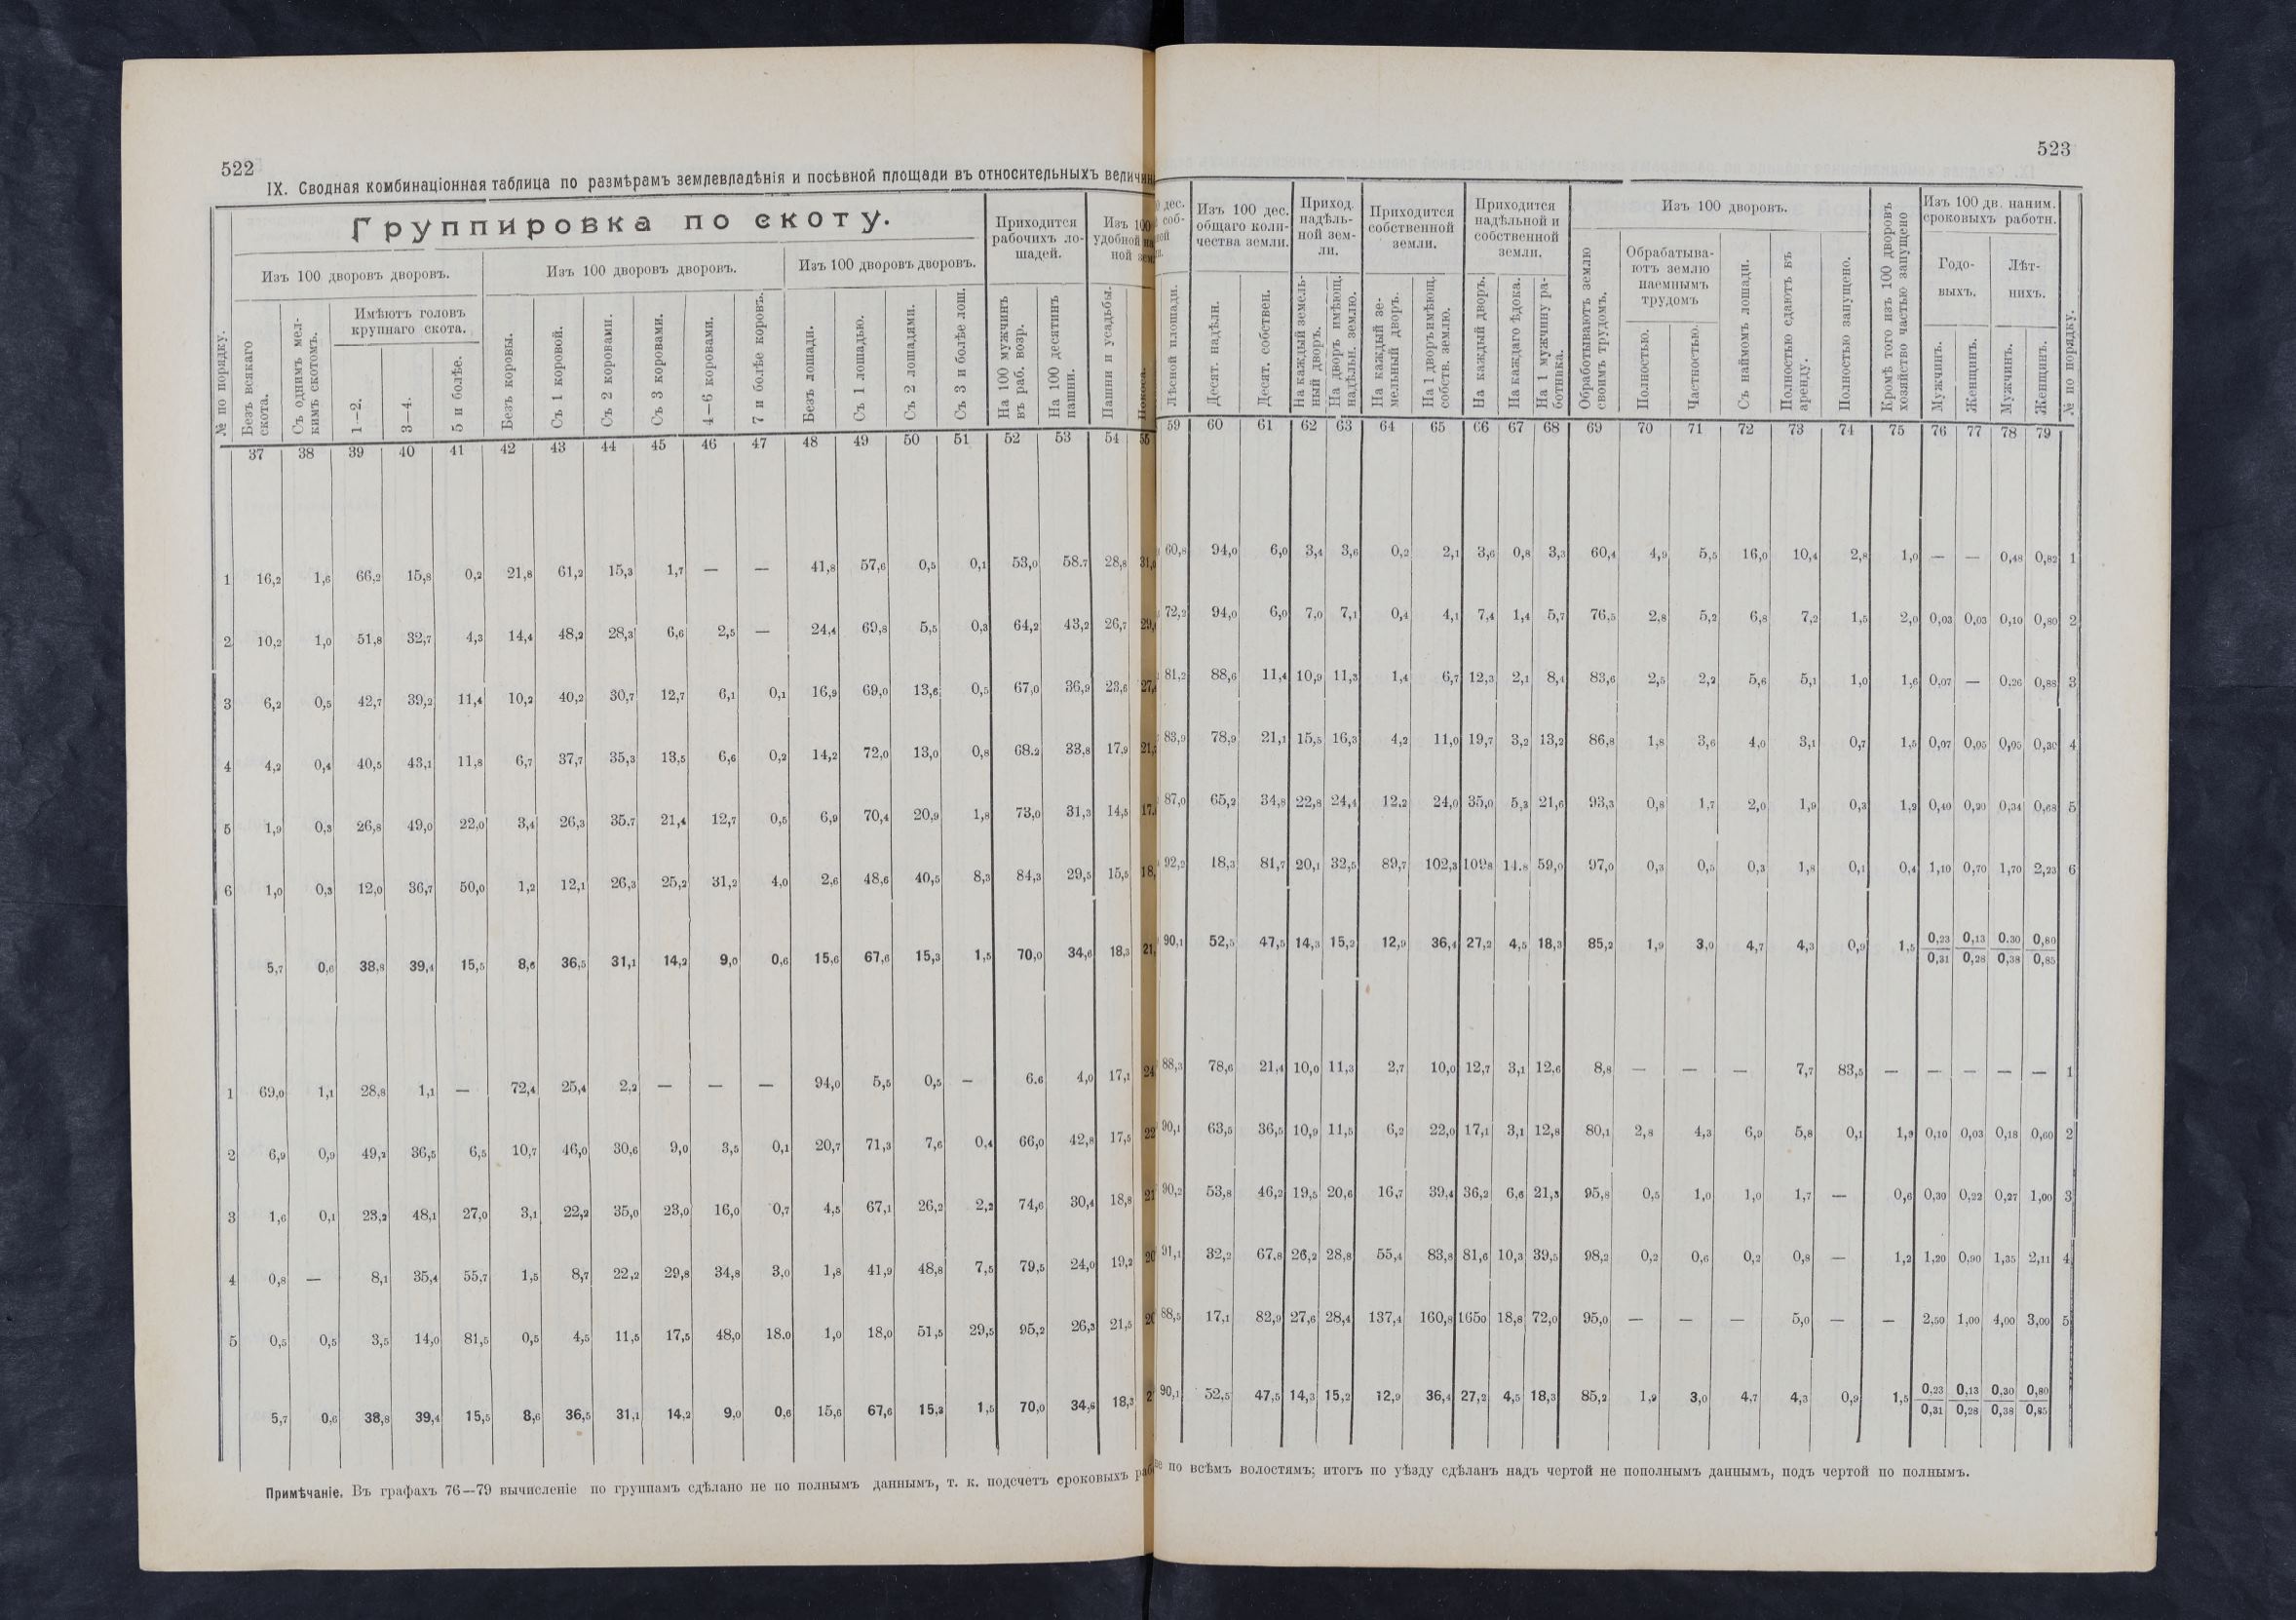 522
IX. Сводная комбинаціонная таблица по размѣрамъ землевладѣнія и посѣвной площади въ относительныхъ величин
№ по порядку.
Группировка по скоту.
Изъ 100 дворовъ дворовъ.
Безъ всякаго скота.
Съ однимъ мелкимъ скотомъ.
Имѣютъ головъ крупнаго скота.
1—2.
3—4.
5 и болѣе.
Изъ 100 дворовъ дворовъ.
Безъ коровы.
Съ 1 коровой.
Съ 2 коровами.
Съ 3 коровами.
4—6 коровами.
7 и болѣе коровъ.
Изъ 100 дворовъ дворовъ.
Безъ лошади.
Съ 1 лошадью.
Съ 2 лошадями.
Съ 3 и болѣе лош.
Приходится рабочихъ лошадей.
На 100 мужчинъ въ раб. возр.
На 100 десятинъ пашни.
Изъ 100
удобной
Пашни и усадьбы.
Покоса.
37 38 39 40 41 42 43 44 45 46 47 48 49 50 51 52 53 54 55
1 16,2 1,6 66,2 15,8 0,2 21,8 61,2 15,3 1,7 — — 41,8 57,6 0,5 0,1 53,0 58.7 28,8
2 10,2 1,0 51,8 32,7 4,3 14,4 48,2 28,3 6,6 2,5 — 24,4 69,8 5,5 0,3 64,2 43,2 26,7
3 6,2 0,5 42,7 39,2 11,4 10,2 40,2 30,7 12,7 6,1 0,1 16,9 69,0 13,6 0,5 67,0 36,9 23,6
4 4,2 0,4 40,5 43,1 11,8 6,7 37,7 35,3 13,5 6,6 0,2 14,2 72,0 13,0 0,8 68.2 33,8 17,9
5 1,9 0,3 26,8 49,0 22,0 3,4 26,3 35.7 21,4 12,7 0,5 6,9 70,4 20,9 1,8 73,0 31,3 14,5
6 1,0 0,3 12,0 36,7 50,0 1,2 12,1 26,3 25,2 31,2 4,0 2,6 48,6 40,5 8,3 84,3 29,5 15,5
5,7 0,6 38,8 39,4 15,5 8,6 36,5 31,1 14,2 9,0 0,6 15,6 67,6 15,3 1,5 70,0 34,6 18,3
1 69,0 1,1 28,8 1,1 — 72,4 25,4 2,2 — — — 94,0 5,5 0,5 — 6.6 4,0 17,1
2 6,9 0,9 49,2 36,5 6,5 10,7 46,0 30,6 9,0 3,5 0,1 20,7 71,3 7,6 0,4 66,0 42,8 17,5
3 1,6 0,1 23,2 48,1 27,0 3,1 22,2 35,0 23,0 16,0 0,7 4,5 67,1 26,2 2,2 74,6 30,4 18,8
4 0,8 — 8,1 35,4 55,7 1,5 8,7 22,2 29,8 34,8 3,0 1,8 41,9 48,8 7,5 79,5 24,0 19,2
5 0,5 0,5 3,5 14,0 81,5 0,5 4,5 11,5 17,5 48,0 18.0 1,0 18,0 51,5 29,5 95,2 26,3 21,5
5,7 0,6 38,8 39,4 15,5 8,6 36,5 31,1 14,2 9,0 0,6 15,6 67,6 15,3 1,5 70,0 34,6 18,3
Примѣчаніе. Въ графахъ 76—79 вычисленіе по группамъ сдѣлано не по полнымъ даннымъ, т. к. подсчетъ сроковыхъ
523
Лѣсной площади.
Изъ 100 дес. общаго количества земли.
Десят. надѣлн.
Десят. собствен.
Приход. надѣльной земли.
На каждый земельный дворъ.
На дворъ имѣющ. надѣльн. землю.
Приходится собственной земли.
На каждый земельный дворъ.
На 1 дворъ имѣющ. собств. землю.
Приходится надѣльной и собственной земли.
На каждый дворъ.
На каждаго ѣдока.
На 1 мужчину работника.
Изъ 100 дворовъ.
Обработываютъ землю своимъ трудомъ.
Обрабатываютъ землю наемнымъ трудомъ
Полностью.
Частностью.
Съ наймомъ лошади.
Полностью сдаютъ въ аренду.
Полностью запущено.
Кромѣ того изъ 100 дворовъ хозяйство частью запущено
Изъ 100 дв. наним. сроковыхъ работн.
Годовыхъ.
Лѣтнихъ.
Мужчинъ.
Женщинъ.
Мужчинъ.
Женщинъ.
№ по порядку.
59 60 61 62 63 64 65 66 67 68 69 70 71 72 73 74 75 76 77 78 79
60,8 94,0 6,0 3,4 3,6 0,2 2,1 3,6 0,8 3,3 60,4 4,9 5,5 16,0 10,4 2,8 1,0 — — 0,48 0,82 1
72,2 94,0 6,0 7,0 7,1 0,4 4,1 7,4 1,4 5,7 76,5 2,8 5,2 6,8 7,2 1,5 2,0 0,03 0,03 0,10 0,80 2
81,2 88,6 11,4 10,9 11,3 1,4 6,7 12,3 2,1 8,4 83,6 2,5 2,2 5,6 5,1 1,0 1,6 0,07 — 0,26 0,88 3
83,9 78,9 21,1 15,5 16,3 4,2 11,0 19,7 3,2 13,2 86,8 1,8 3,6 4,0 3,1 0,7 1,5 0,07 0,05 0,05 0,30 4
87,0 65,2 34,8 22,8 24,4 12,2 24,0 35,0 5,3 21,6 93,3 0,8 1,7 2,0 1,9 0,3 1,2 0,40 0,20 0,34 0,68 5
92,2 18,3 81,7 20,1 32,5 89,7 102,3 1098 14.8 59,0 97,0 0,3 0,5 0,3 1,8 0,1 0,4 1,10 0,70 1,70 2,23 6
90,1 52,5 47,5 14,3 15,2 12,9 36,4 27,2 4,5 18,3 85,2 1,9 3,0 4,7 4,3 0,9 1,5 0,23 0,13 0.30 0,80
0,31 0,28 0,38 0,85
88,3 78,6 21,4 10,0 11,3 2,7 10,0 12,7 3,1 12,6 8,8 — — — 7,7 83,5 — — — — — 1
90,1 63,5 36,5 10,9 11,5 6,2 22,0 17,1 3,1 12,8 80,1 2,8 4,3 6,9 5,8 0,1 1,9 0,10 0,03 0,18 0,60 2
90,2 53,8 46,2 19,5 20,6 16,7 39,4 36,2 6,6 21,3 95,8 0,5 1,0 1,0 1,7 — 0,6 0,30 0,22 0,27 1,00 3
91,1 32,2 67,8 26,2 28,8 55,4 83,8 81,6 10,3 39,5 98,2 0,2 0,6 0,2 0,8 — 1,2 1,20 0,90 1,35 2,11 4
88,5 17,1 82,9 27,6 28,4 137,4 160,8 1650 18,8 72,0 95,0 — — — 5,0 — — 2,50 1,00 4,00 3,00 5
90,1 52,5 47,5 14,3 15,2 12,9 36,4 27,2 4,5 18,3 85,2 1,9 3,0 4.7 4,3 0,9 1,5 0,23 0,13 0,30 0,80
0,31 0,28 0,38 0,85
по всѣмъ волостямъ; итогъ по уѣзду сдѣланъ надъ чертой не пополнымъ даннымъ, подъ чертой по полнымъ.